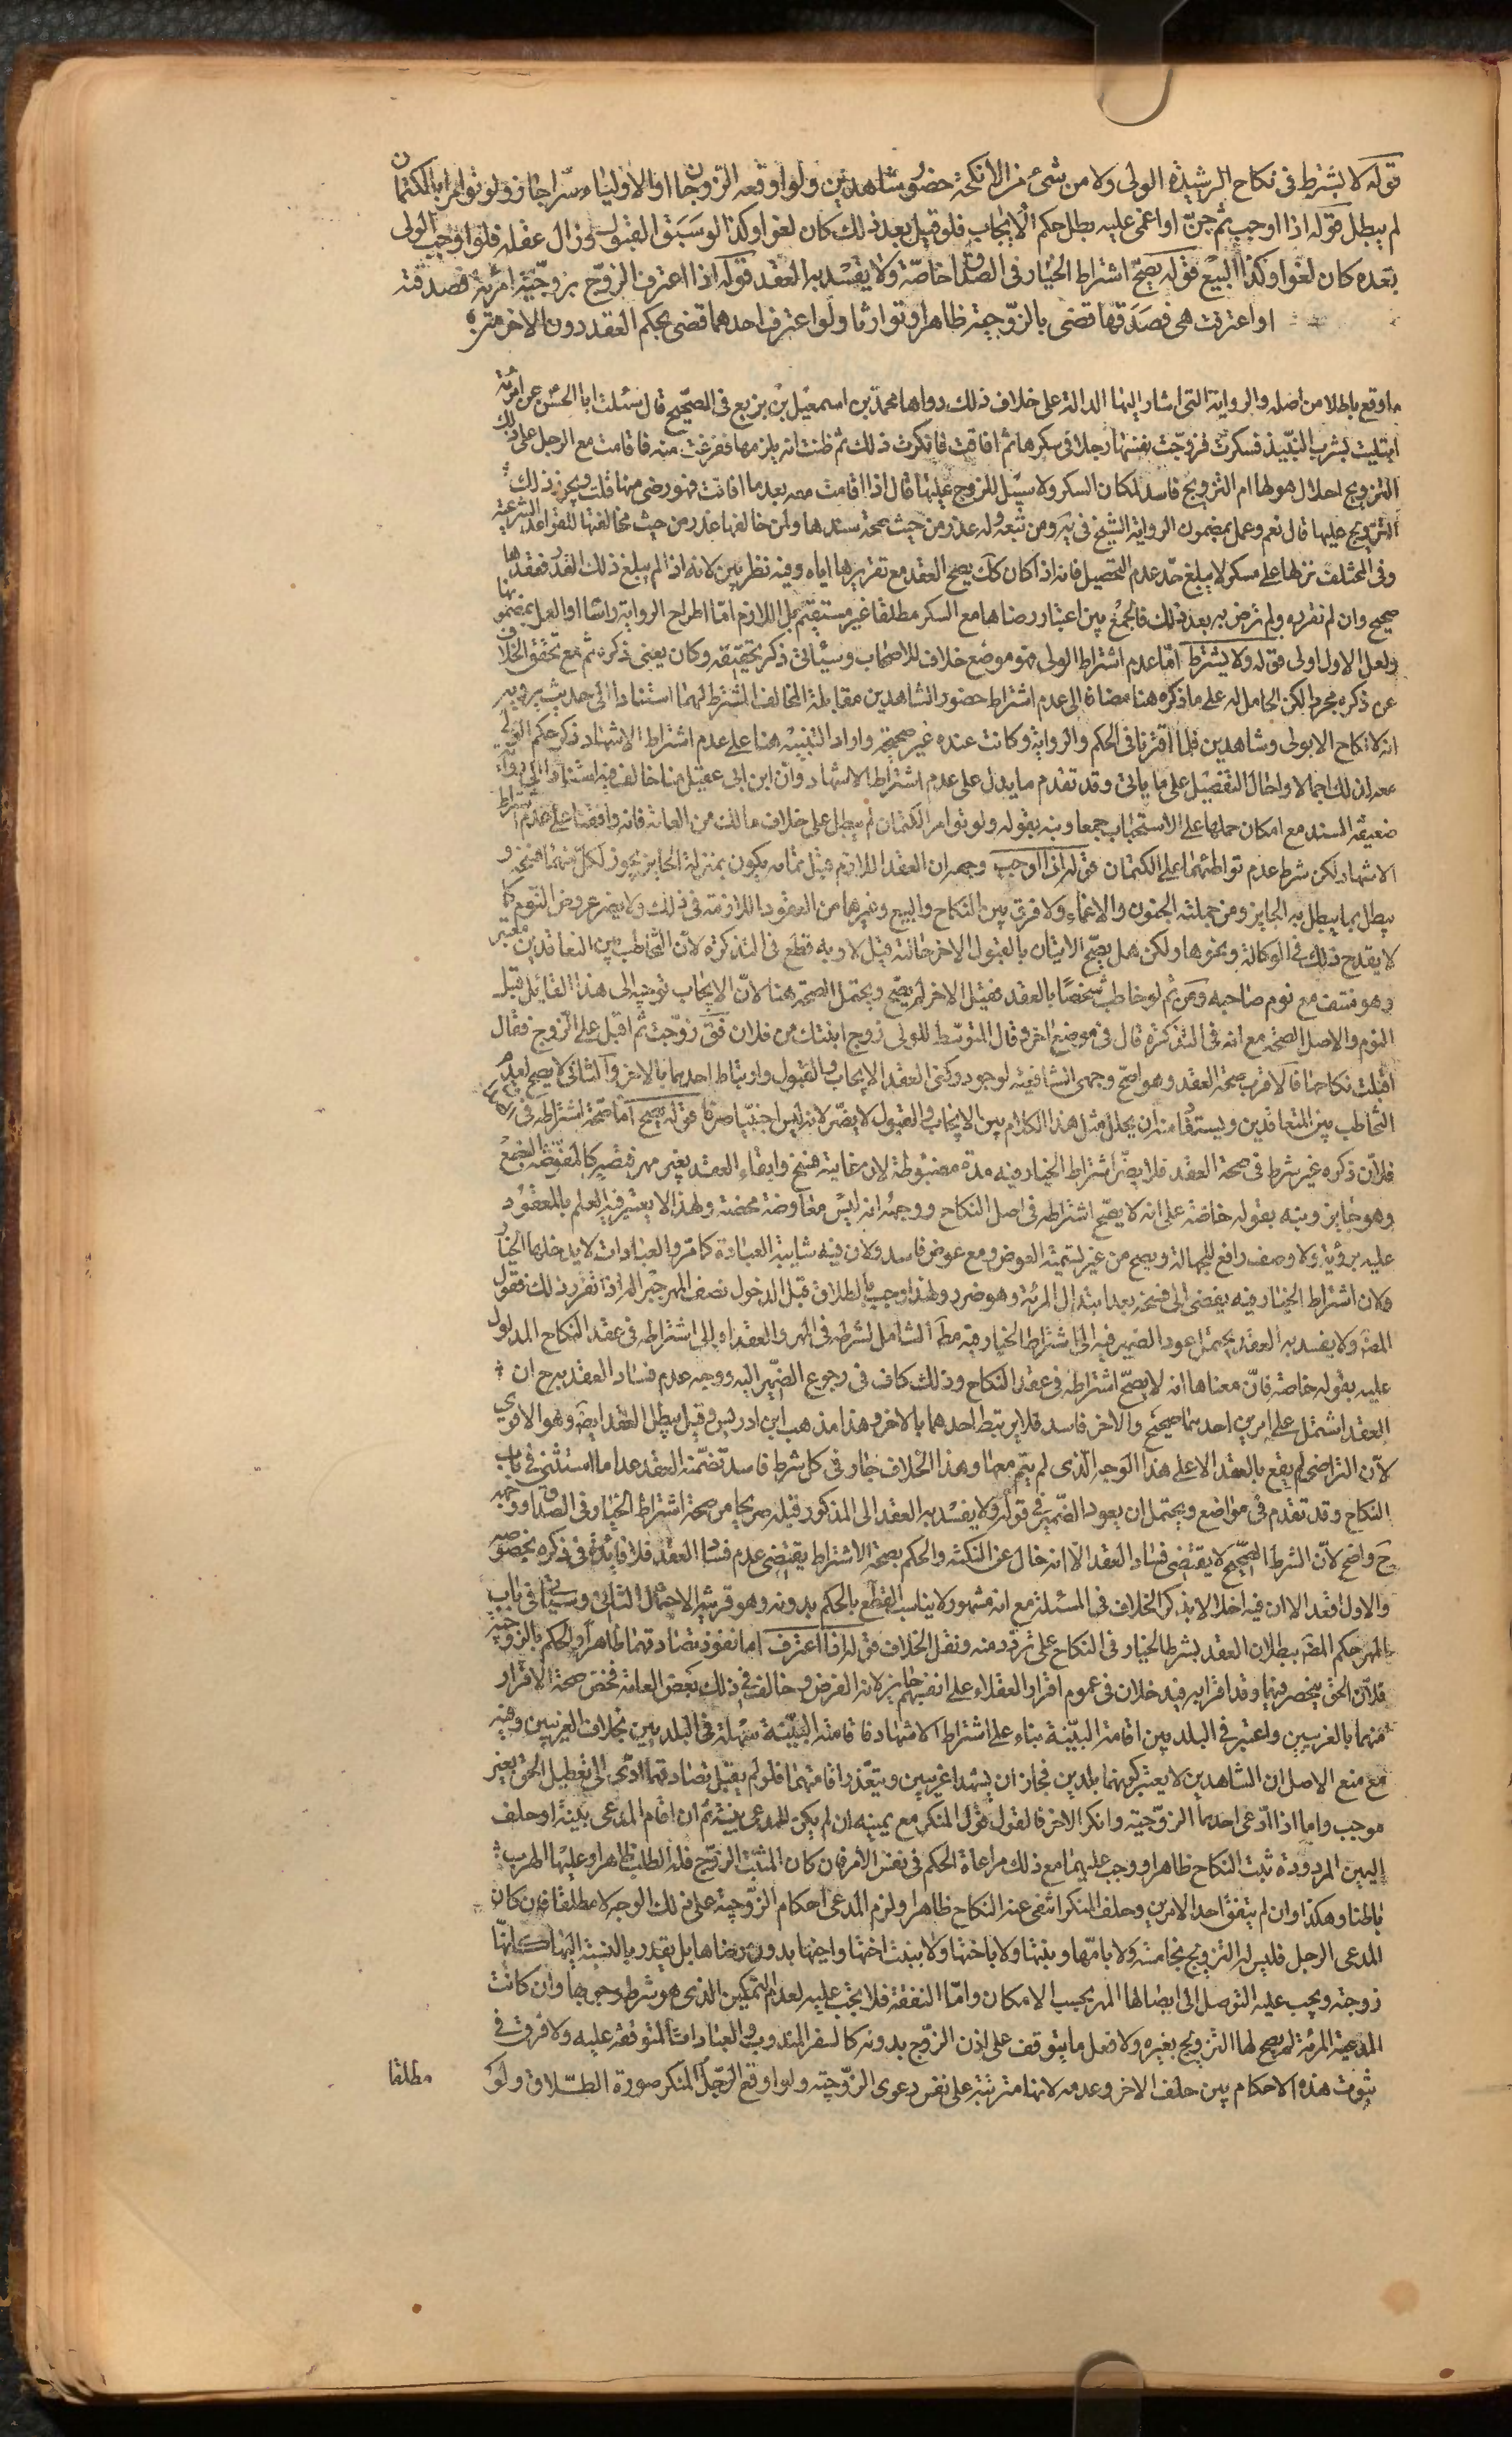 قوله لا يشترط في نكاح الرشيدة الولي ولا من شيء من الأنكحة حضور شاهدين ولو اوقعه الزوجان او الاولياء سرا جاز ولو تؤامرا بالكتمان
لم يبطل قوله اذا اوجب ثم جنّ او اغمى عليه بطل حكم الايجاب فلو قبل بعد ذلك كان لغوا وكذا لو سبق القبول وزال عقله فلو اوجب الولي
بعده كان لغوا وكذا البيع قوله يصحّ اشتراط الخيار في الصداق خاصّة ولا يفسد به العقد قوله اذا اعترف الزوج بزوجيّة امرئة فصدقته
او اعترفت هي فصدقها قضى بالزوجية ظاهرا وتوارثا ولو اعترف احدهما قضى بحكم العقد دون الاخر
ما وقع باطلا من اصله والرواية التي اشار اليها الدالة على خلاف ذلك رواها محمد بن اسمعيل بن بزيع في الصحيح قال سئلت ابا الحسن عن امرئة
ابتليت بشرب النبيذ فسكرت فزوجت نفسها رجلا في سكرها ثم افاقت فانكرت ذلك ثم ظنت انه يلزمها ففزعت منه فاقامت مع الرجل على ذلك
التزويج احلال هو لها ام التزويج فاسد لمكان السكر ولا سبيل للزوج عليها قال اذا اقامت معه بعد ما افاقت فهو رضى منها قلت ويجوز ذلك
التزويج عليها قال نعم وعمل بمضمون الرواية الشيخ في يه ومن تبعه وله عذر من حيث صحة سندها ولمن خالفها عذر من حيث مخالفتها للقواعد الشرعية
وفي المختلف نزلها على سكر لا يبلغ حد عدم التحصيل فانه اذا كان كك يصح العقد مع تقريرها اياه وفيه نظر بين لانه اذا لم يبلغ ذلك القدر فعقدها
صحيح وان لم تقرره ولم ترض به بعد ذلك فالجمع بين اعتبار رضاها مع السكر مطلقا غير مستقيم بل اللازم امّا اطراح الرواية راسا او العمل بمضمونها
ولعل الاول اولى قوله ولا يشترط امّا عدم اشتراط الولي فهو موضع خلاف للاصحاب وسيأتي ذكر تحقيقه وكان يعنى ذكره ثم مع تحقق الخلاف
عن ذكره مجردا لكن الحامل له على ما ذكره هنا مضافا الى عدم اشتراط حضور الشاهدين مقابلة المخالف المشترط لهما استنادا الى حديث يرويه
انه لا نكاح الا بولي وشاهدين فلما اقترنا في الحكم والرواية وكانت عنده غير صحيحة واراد التنبيه هنا على عدم اشتراط الاشهاد ذكر حكم الولي
معه ان ذلك اجمالا واحال التفصيل على ما يأتي وقد تقدم ما يدل على عدم اشتراط الاشهاد وان ابن ابي عقيل منا خالف فيه استنادا الى رواية
ضعيفة السند مع امكان حملها على الاستحباب جمعا ونبه بقوله ولو تؤامرا الكتمان لم يبطل على خلاف مالك من العامة فانه وافقنا على عدم اشتراط
الاشهاد لكن شرط عدم تواطئهما على الكتمان قوله اذا اوجب وجهه ان العقد اللازم قبل تمامه يكون بمنزلة الجايز يجوز لكل منهما فسخه و
يبطل بما يبطل به الجايز ومن جملته الجنون والاغماء ولا فرق بين النكاح والبيع وغيرها من العقود اللازمة في ذلك ولا يضر عروض النوم كما
لا يقدح ذلك في الوكالة ونحوها ولكن هل يصحّ الاتيان بالقبول الاخر حالته قيل لا وبه قطع في التذكرة لانّ التخاطب بين المتعاقدين معتبر
وهو منتف مع نوم صاحبه ومن ثم لو خاطب شخصا بالعقد فقبل الاخر لم يصحّ ويحتمل الصحة هنا لانّ الايجاب توجه الى هذا القابل قبل
النوم والاصل الصحة مع انه في التذكرة قال في موضع اخر وقال المتوسّط للولي زوج ابنتك من فلان فق زوّجت ثم اقبل على الزوج فقال
اقبلت نكاحها فالاقرب صحة العقد وهو اصحّ وجهي الشافعية لوجود ركني العقد الايجاب والقبول وارتباط احدهما بالاخر والثاني لا يصح لعدم
التخاطب بين المتعاقدين ويستوقفا منه ان تخلل مثل هذا الكلام بين الايجاب والقبول لا يضّر لانه ليس اجنبيّا صرفا قوله يصحّ امّا صحة اشتراطه في
فلانّ ذكره غير شرط في صحة العقد فلا يضّر اشتراط الخيار فيه مدة مضبوطة لان غايته فسخ وابقاء العقد بغير مهر فيصير كالمفوضة البضع
وهو جايز ونبه بقوله خاصّة على انه لا يصّح اشتراطه في اصل النكاح ووجهه انه ليس معاوضة محضة ولهذا لا يعتبر فيه العلم بالمعقود
عليه برؤية ولا وصف رافع للجهالة ويصح من غير تسمية العوض ومع عوض فاسد ولان فيه شايبة العبادة كما مر والعبادات لا يدخلها الخيار
ولان اشتراط الخيار فيه يفضى الى فسخه بعد ابتذال المرئة وهو ضرر ولهذا وجب بالطلاق قبل الدخول نصف المهر جبرا له اذا تقرر ذلك فقول
المصّ ولا يفسد به العقد يحتمل عود الضمير فيه الى اشتراط الخيار فيه مط الشامل لشرطه في المهر والعقد او الى اشتراطه في عقد النكاح المدلول
عليه بقوله خاصة فانّ معناها انه لا يصحّ اشتراطه في عقد النكاح وذلك كاف في رجوع الضمير اليه ووجه عدم فساد العقد به ح ان
العقد اشتمل على امرين احدهما صحيح والاخر فاسد فلا يرتبط احدهما بالاخر وهذا مذهب ابن ادريس وقيل يبطل العقد ايضا وهو الاقوى
لانّ التراضي لم يقع بالعقد الا على هذا الوجه الذي لم يتم معها وهذا الخلاف جار في كل شرط فاسد تضمّنه العقد عدا ما استثنى في باب
النكاح وقد تقدم في مواضع ويحتمل ان يعود الضمير في قوله ولا يفسد به العقد الى المذكور قبله صريحا من صحة اشتراط الخيار في الصداق ووجهه
ح واضح لانّ الشرط الصحيح لا يقتضى فساد العقد الا انه خال عن النكتة والحكم بصحة الاشتراط يقتضى عدم فساد العقد فلا فايدة في ذكره بخصوصه
والاول اقعد الا ان فيه اخلالا بذكر الخلاف في المسئلة مع انه مشهور ولا يناسب القطع بالحكم بدونه وهو قرينة الاحتمال الثاني وسيأتي في باب
المهر حكم المصّ ببطلان العقد بشرط الخيار في النكاح على تردّد منه ونقل الخلاف قوله اذا اعترف اما نفوذ تصادقهما ظاهرا والحكم بالزوجية
فلانّ الحق ينحصر فيهما وقد اقرّا به فيدخلان في عموم اقرار العقلاء على انفسهم جايز لانه الفرض وخالف في ذلك بعض العامة فخص صحة الاقرار
منهما بالغريبين واعتبر في البلديين اقامة البيّنة بناء على اشتراط الاشهاد فاقامة البيّنة سهلة في البلديين بخلاف الغريبين وفيه
مع منع الاصل ان الشاهدين لا يعتبر كونهما بلديين فجاز ان يشهدا غريبين ويتعّذر اقامتهما فلو لم يقبل تصادقهما ادّى الى تعطيل الحق بغير
موجب واما اذا ادّعى احدهما الزوّجيّة وانكر الاخر فالقول قول المنكر مع يمينه ان لم يكن للمدعى بينة ثم ان اقام المدعى بينة او حلف
اليمين المردودة ثبت النكاح ظاهرا ووجب عليهما مع ذلك مراعاة الحكم في نفس الامر فان كان المثبت الزوج فله الطلب ظاهرا وعليها الهرب
باطنا وهكذا وان لم يتفق احد الامرين وحلف المنكر انتفى عنه النكاح ظاهرا ولزم المدعى احكام الزوجية على ذلك الوجه لا مطلقا فان كان
المدعى الرجل فليس له التزويج بخامسة ولا بامّها وبنتها ولا باختها ولا ببنت اختها واخيها بدون رضاها بل يقدر بالنسبة اليها كانّها
زوجته ويجب عليه التوصل الى ايصالها المهر بحسب الامكان وامّا النفقة فلا يجب عليه لعدم التمكين الذي هو شرط وجوبها وان كانت
المدعية المرئة لم يصح لها التزويج بغيره ولا فعل ما يتوقف على اذن الزوج بدونه كالسفر المندوب والعبادات المتوقفة عليه ولا فرق في
ثبوت هذه الاحكام بين حلف الاخر وعدمه لانها مترتبة على نفس دعوى الزوجية ولو اوقع الرجل المنكر صورة الطلاق ولو
مطلقا